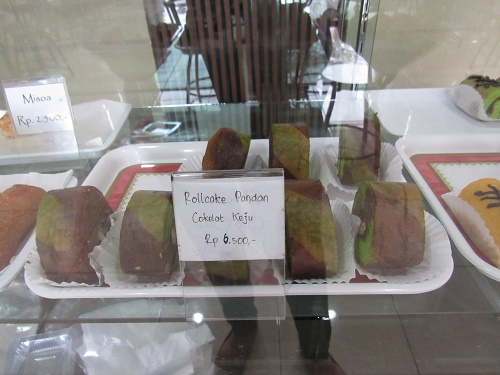 Misoa
Rp. 2.900,-
Rollcake Pandan
Cokelat Keju
Rp 6.500,-